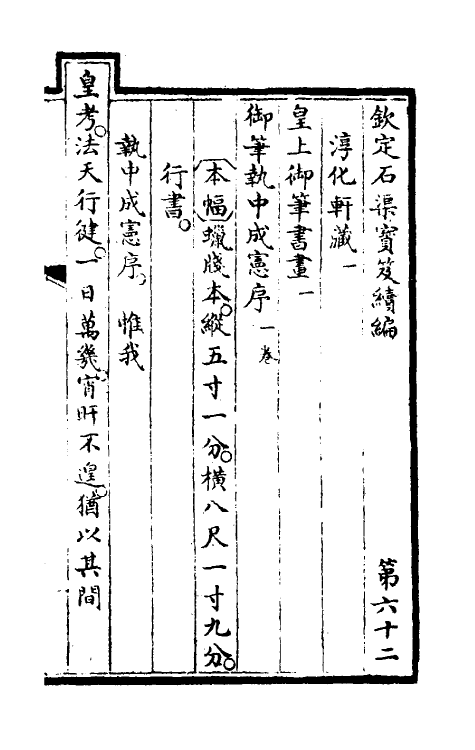 欽定石渠寶笈續編 第六十二
淳化軒藏一
皇上御筆書畫一
御筆執中成憲序一卷
本幅蠟牋本。縱五寸一分。橫八尺一寸九分。
行書。
執中成憲序。惟我
皇考。法天行健。一日萬幾。宵旰不遑。猶以其間